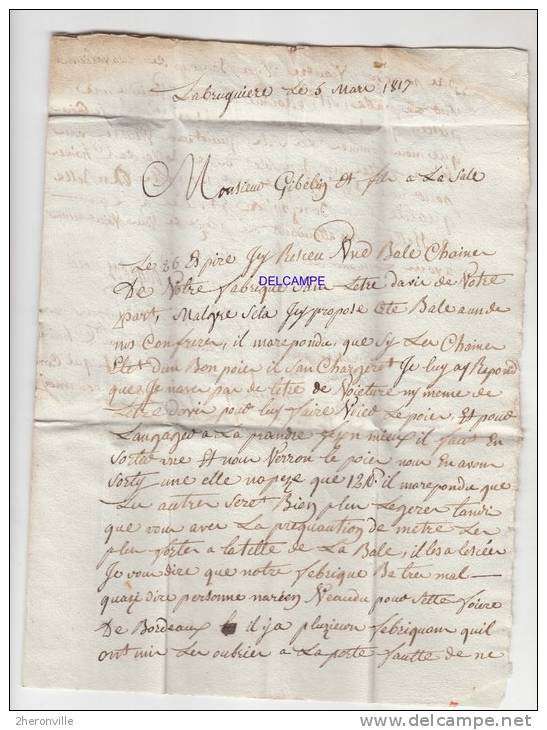 Labruguiere Le 5 Mars 1817
Monsieur Gibelin et fils a La Sale
Le 26 Expire Jy Resceu Une Bale Chaines
De Votre fabrique San Letre davis de Votre
DELCAMPE
part, Malgre Sela Jy propose Cete Bale a un de
nos Confreres, il ma repondu que Sy Les Chaines
Etet dun Bon poier il San Chargeret Je luy ay Respond
que Je naves pas de letre de Voieture ny meme de
Letre davis pour luy faire Voier Le poier, Et pour
Langager a La prandre
mieux il faut En
Sortir une Et nous Verron le poier nous En avons
Sorty une elle na peze que 12 il ma repondu que
Les autres Seret Bien plus Legeres tandis
que vous aves La prequaution de metre Les
plus fortes a la tette de La Bale, il les a lesiées
Je vous dire que notre febrique Ba tres mal
quasi dire personne na rien Veandu pour Sette foiere
De Bordeaux il i ja pluzieurs febriquans quil
ont mis Les oubries a La porte fautte de ne
2heronville
www.delcampe.net